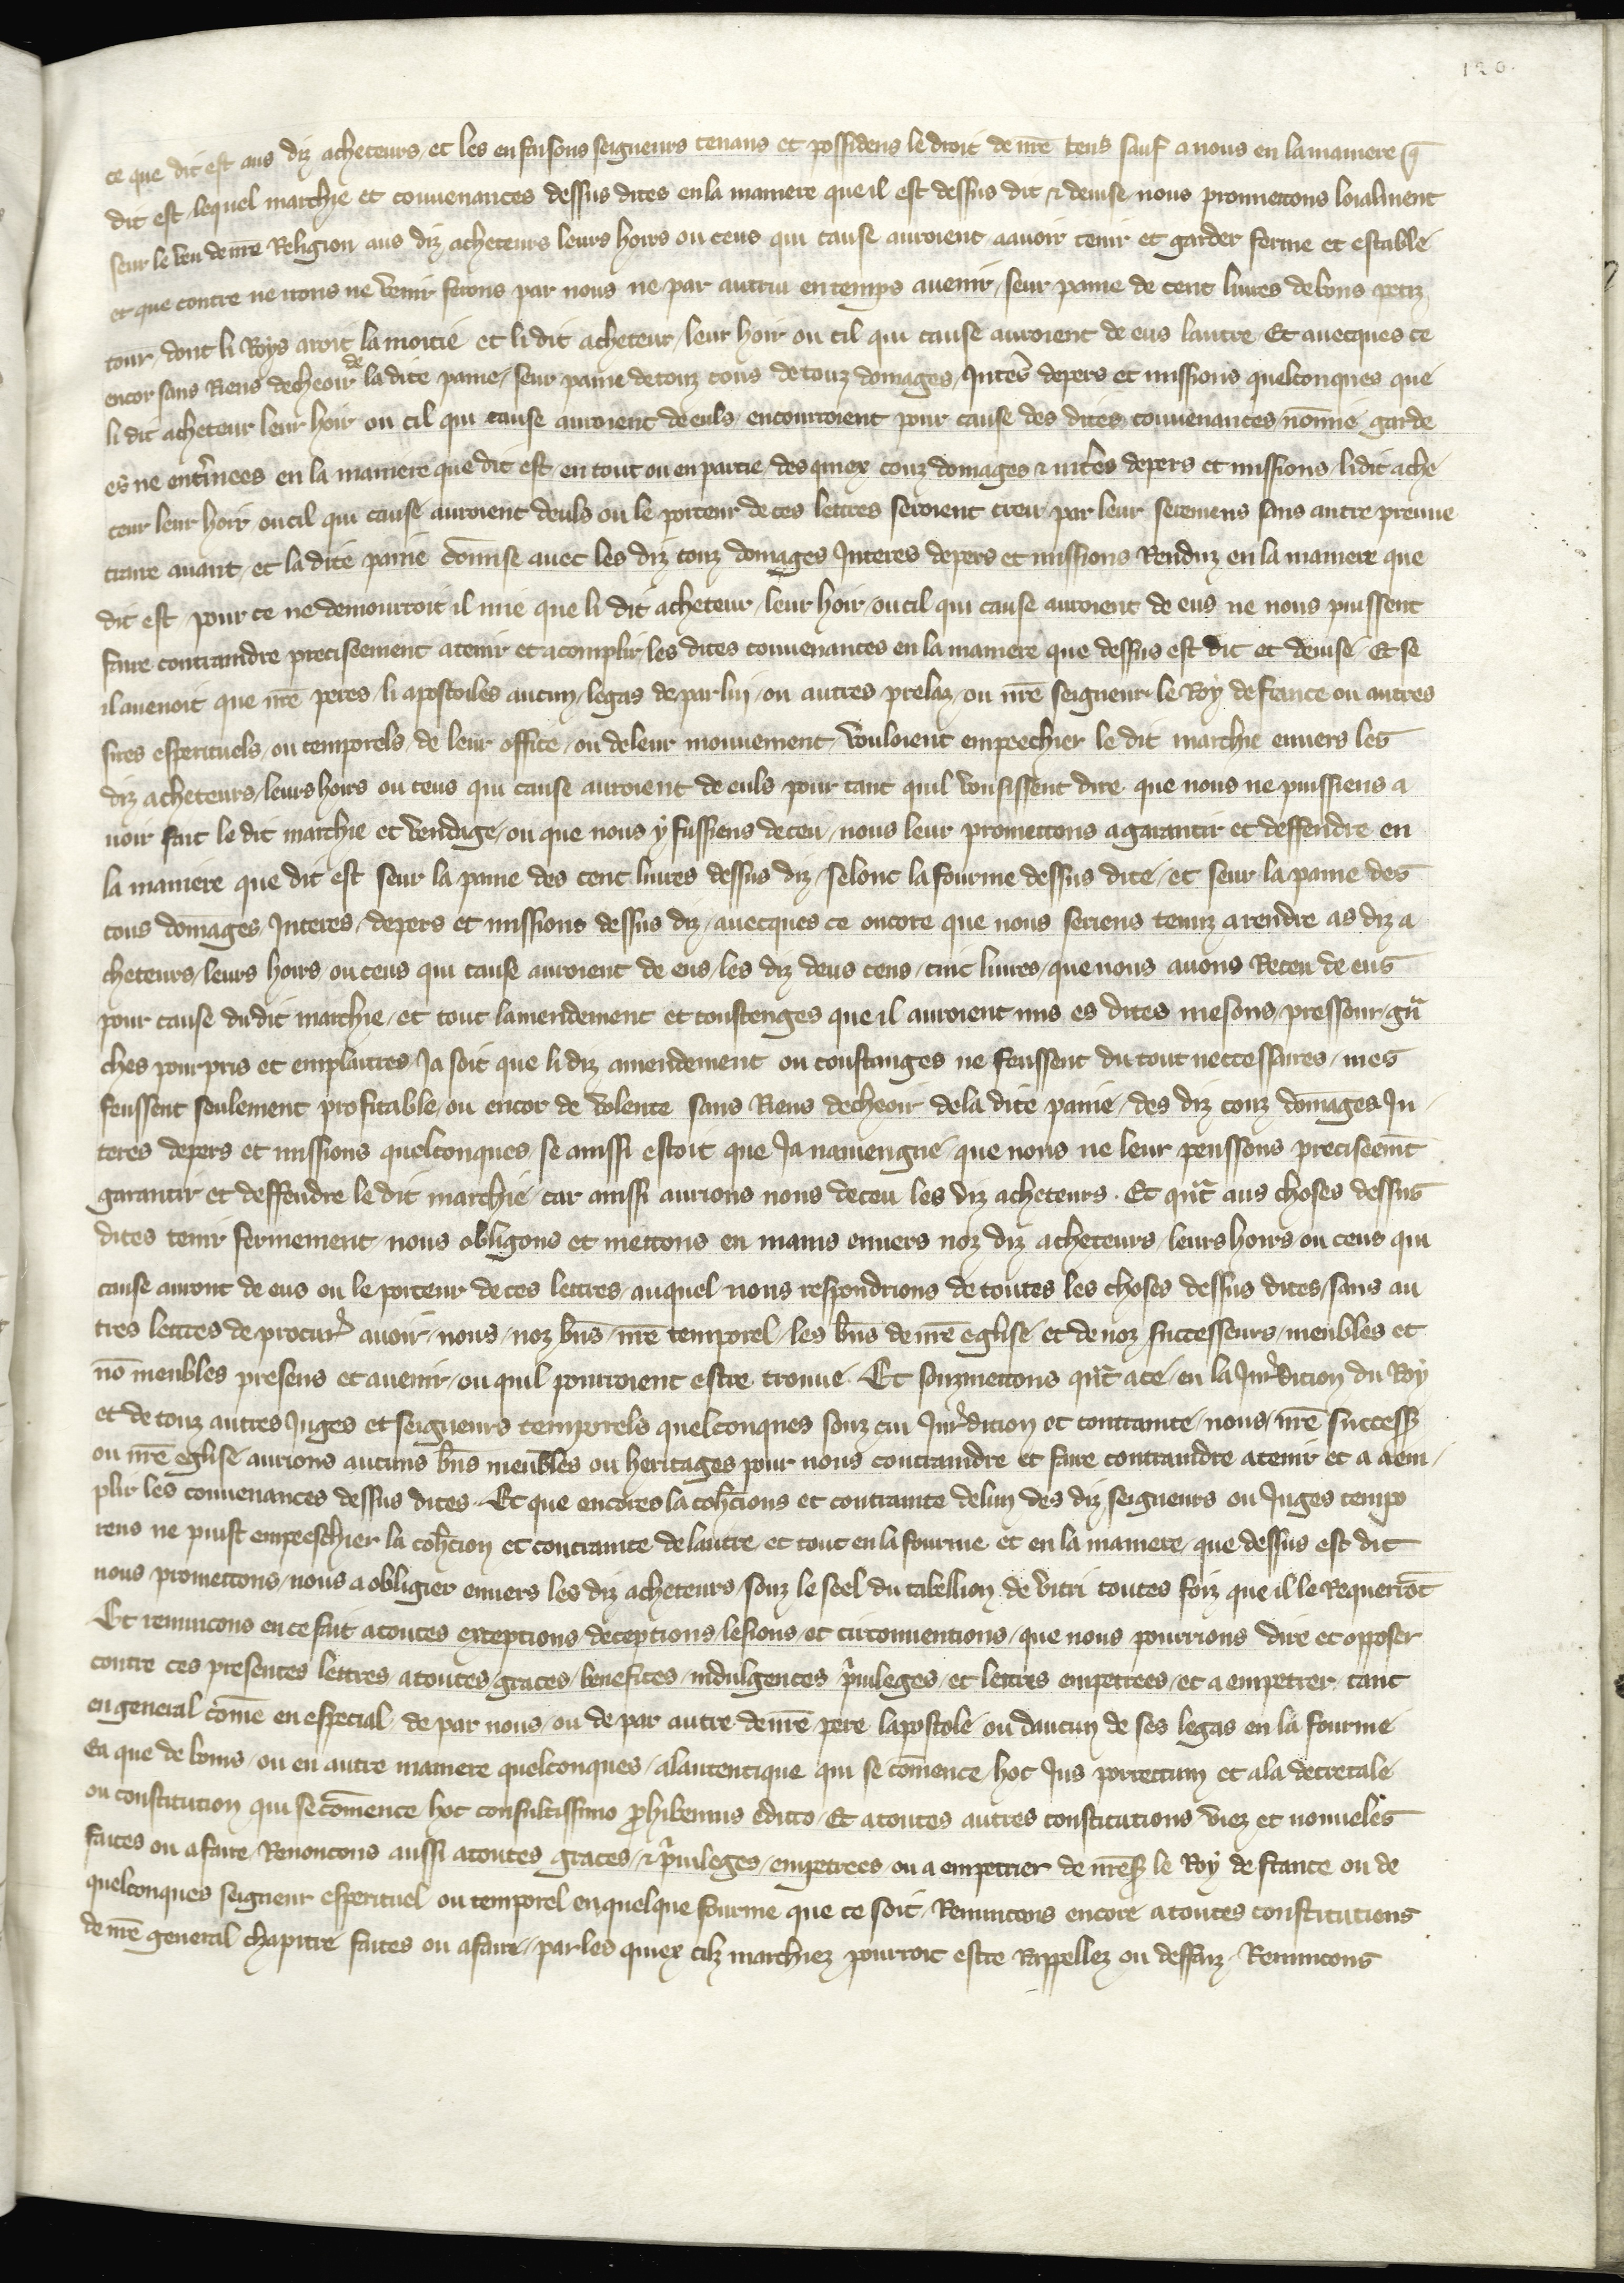 120.
ce que dit est aus diz acheteurs, et les en faisons seigneurs tenans et possidens le droit de nr̄e tens sauf a nous en la maniere q̄
dit est, lequel marchie et convenances dessus dites en la maniere que il est dessus dit et devise, nous prommetons loialment
seur le veu de nr̄e Religion aus diz acheteurs leurs hoirs ou ceus qui cause auroient, a avoir tenir et garder ferme et estable
et que contre ne irons ne venir ferons par nous ne par autrui en temps avenir, seur paine de cent livres de bons petiz
tour̄, dont li Roys aroit la moitie et li dit acheteur, leur hoir ou cil qui cause auroient de eus lautre Et avecques ce
encor sans Riens decheoir de la dite paine, seur paine de touz cous de touz domages, Interes depers et missions quelconques que
li dit acheteur leur hoir ou cil qui cause auroient de euls, encourroient pour cause des dites convenances nōnnie garde
es ne enterinees en la maniere que dit est, en tout ou en partie, des quiex couz domages et interes depers et missions, li dit ache
teur leur hoir ou cil qui cause auroient deuls ou le porteur de ces lettres seroient creu par leur seremens sans autre preuve
traire avant, et la dite paine cōmise avec les diz couz domages Interes depers et missions Renduz en la maniere que
dit est, pour ce ne demourroit il mie que li dit acheteur, leur hoir, ou cil qui cause auroient de eus ne nous puissent
faire contraindre preciseement a tenir et acomplir les dites convenances en la maniere que dessus est dit et devise, Et se
il avenoit que nr̄e peres, li apostoiles aucun, legas de par lui, ou autres prelaz, ou nr̄e seigneur le Roy de france ou autres
sires esperituels, ou temporels, de leur office, ou de leur mouvement, vouloient empeechier le dit marchie envers les
diz acheteurs, leurs hoirs ou ceus qui cause auroient de euls, pour tant quil vousissent dire, que nous ne puissiens a
voir fait le dit marchie et vendage, ou que nous y fussiens deceu, nous leur promettons a garantir et deffendre en
la maniere que dit est seur la paine des cent livres dessus diz, selonc la fourme dessus dite, et seur la paine des
cous domages, Interes, depers et missions dessus diz, avecques ce oncore que nous seriens tenuz a rendre as diz a
cheteurs, leurs hoirs ou ceus qui cause auroient de eus, les diz deus cens, cinc livres, que nous avons Receu de eus
pour cause du dit marchie, et tout lamendement et coustenges que il auroient mis es dites mesons, pressour, grā
ches pourpris et emplaitres, Ja soit que li diz amendement ou coustanges ne feussent du tout neccessaires, mes
feussent seulement profitable, ou encor de volente sans Riens decheoir de la dite paine, des diz couz, domages, In
teres depers et missions quelconques, se ainssi estoit que Ja naviengne, que nous ne leur peussons preciseemēt
garantir et deffendre le dit marchie, car ainssi aurions nous deceu les diz acheteurs. Et quāt aus choses dessus
dites tenir fermement, nous obligons et mettons en mains envers noz diz acheteurs, leurs hoirs ou ceus qui
cause auront de eus ou le porteur de ces lettres, auquel nous respondrions de toutes les choses dessus dites, sans au
tres lettres de procur̄ avoir, nous, noz bn̄s, nr̄e temporel, les bn̄s de nr̄e eglise et de noz successeurs, meubles et
nō meubles presens et avenir, ou quil pourroient estre trouve. Et souzmettons quāt a ce, en la Jur̄dicion du Roy
et de touz autres Juges et seigneurs temporels quelconques souz cui Jur̄dicion et contrainte, nous, nr̄e success̄
ou nr̄e eglise aurions aucuns bn̄s meubles ou heritages pour nous contraindre et faire contraindre a tenir et a aem
plir les convenances dessus dites. Et que encores la coh̄cions et contrainte de lun des diz seigneurs ou Juges tempo
rens ne puist empeeschier la coh̄cion et contrainte de lautre, et tout en la fourme et en la maniere, que dessus est dit
nous promettons, nous a obligier envers les diz acheteurs, souz le seel du tabellion de vitri toutes foiz que il le Requerrōt
Et renuncons en ce fait a toutes exceptions deceptions, lesions, et circonventions, que nous pourrions dire et opposer
contre ces presentes lettres, a toutes graces, benefices, indulgences, p̄vileges, et lettres empetrees, et a empetrer, tant
en general cōme en especial, de par nous, ou de par autre, de nr̄e pere lapostole ou daucun de ses legas en la fourme
Ea que de bonis, ou en autre maniere quelconques, a lautentique qui se cōmence, hoc Jus porrectum et a la decretale
ou constitution qui se cōmence hoc consultissimo p̄hibemus edicto, Et a toutes autres constitutions viez et nouveles
faites ou a faire, Renoncons aussi a toutes graces, et p̄vileges, empetrees, ou a empetrer de nr̄es̄ le Roy de france ou de
quelconques seigneur esperituel ou temporel en quelque fourme que ce soit, Renuncons encore a toutes constitutions
de nr̄e general chapitre faites ou a faire, par les quiex cilz marchiez pourroit estre Rappellez ou deffaiz, Renuncons